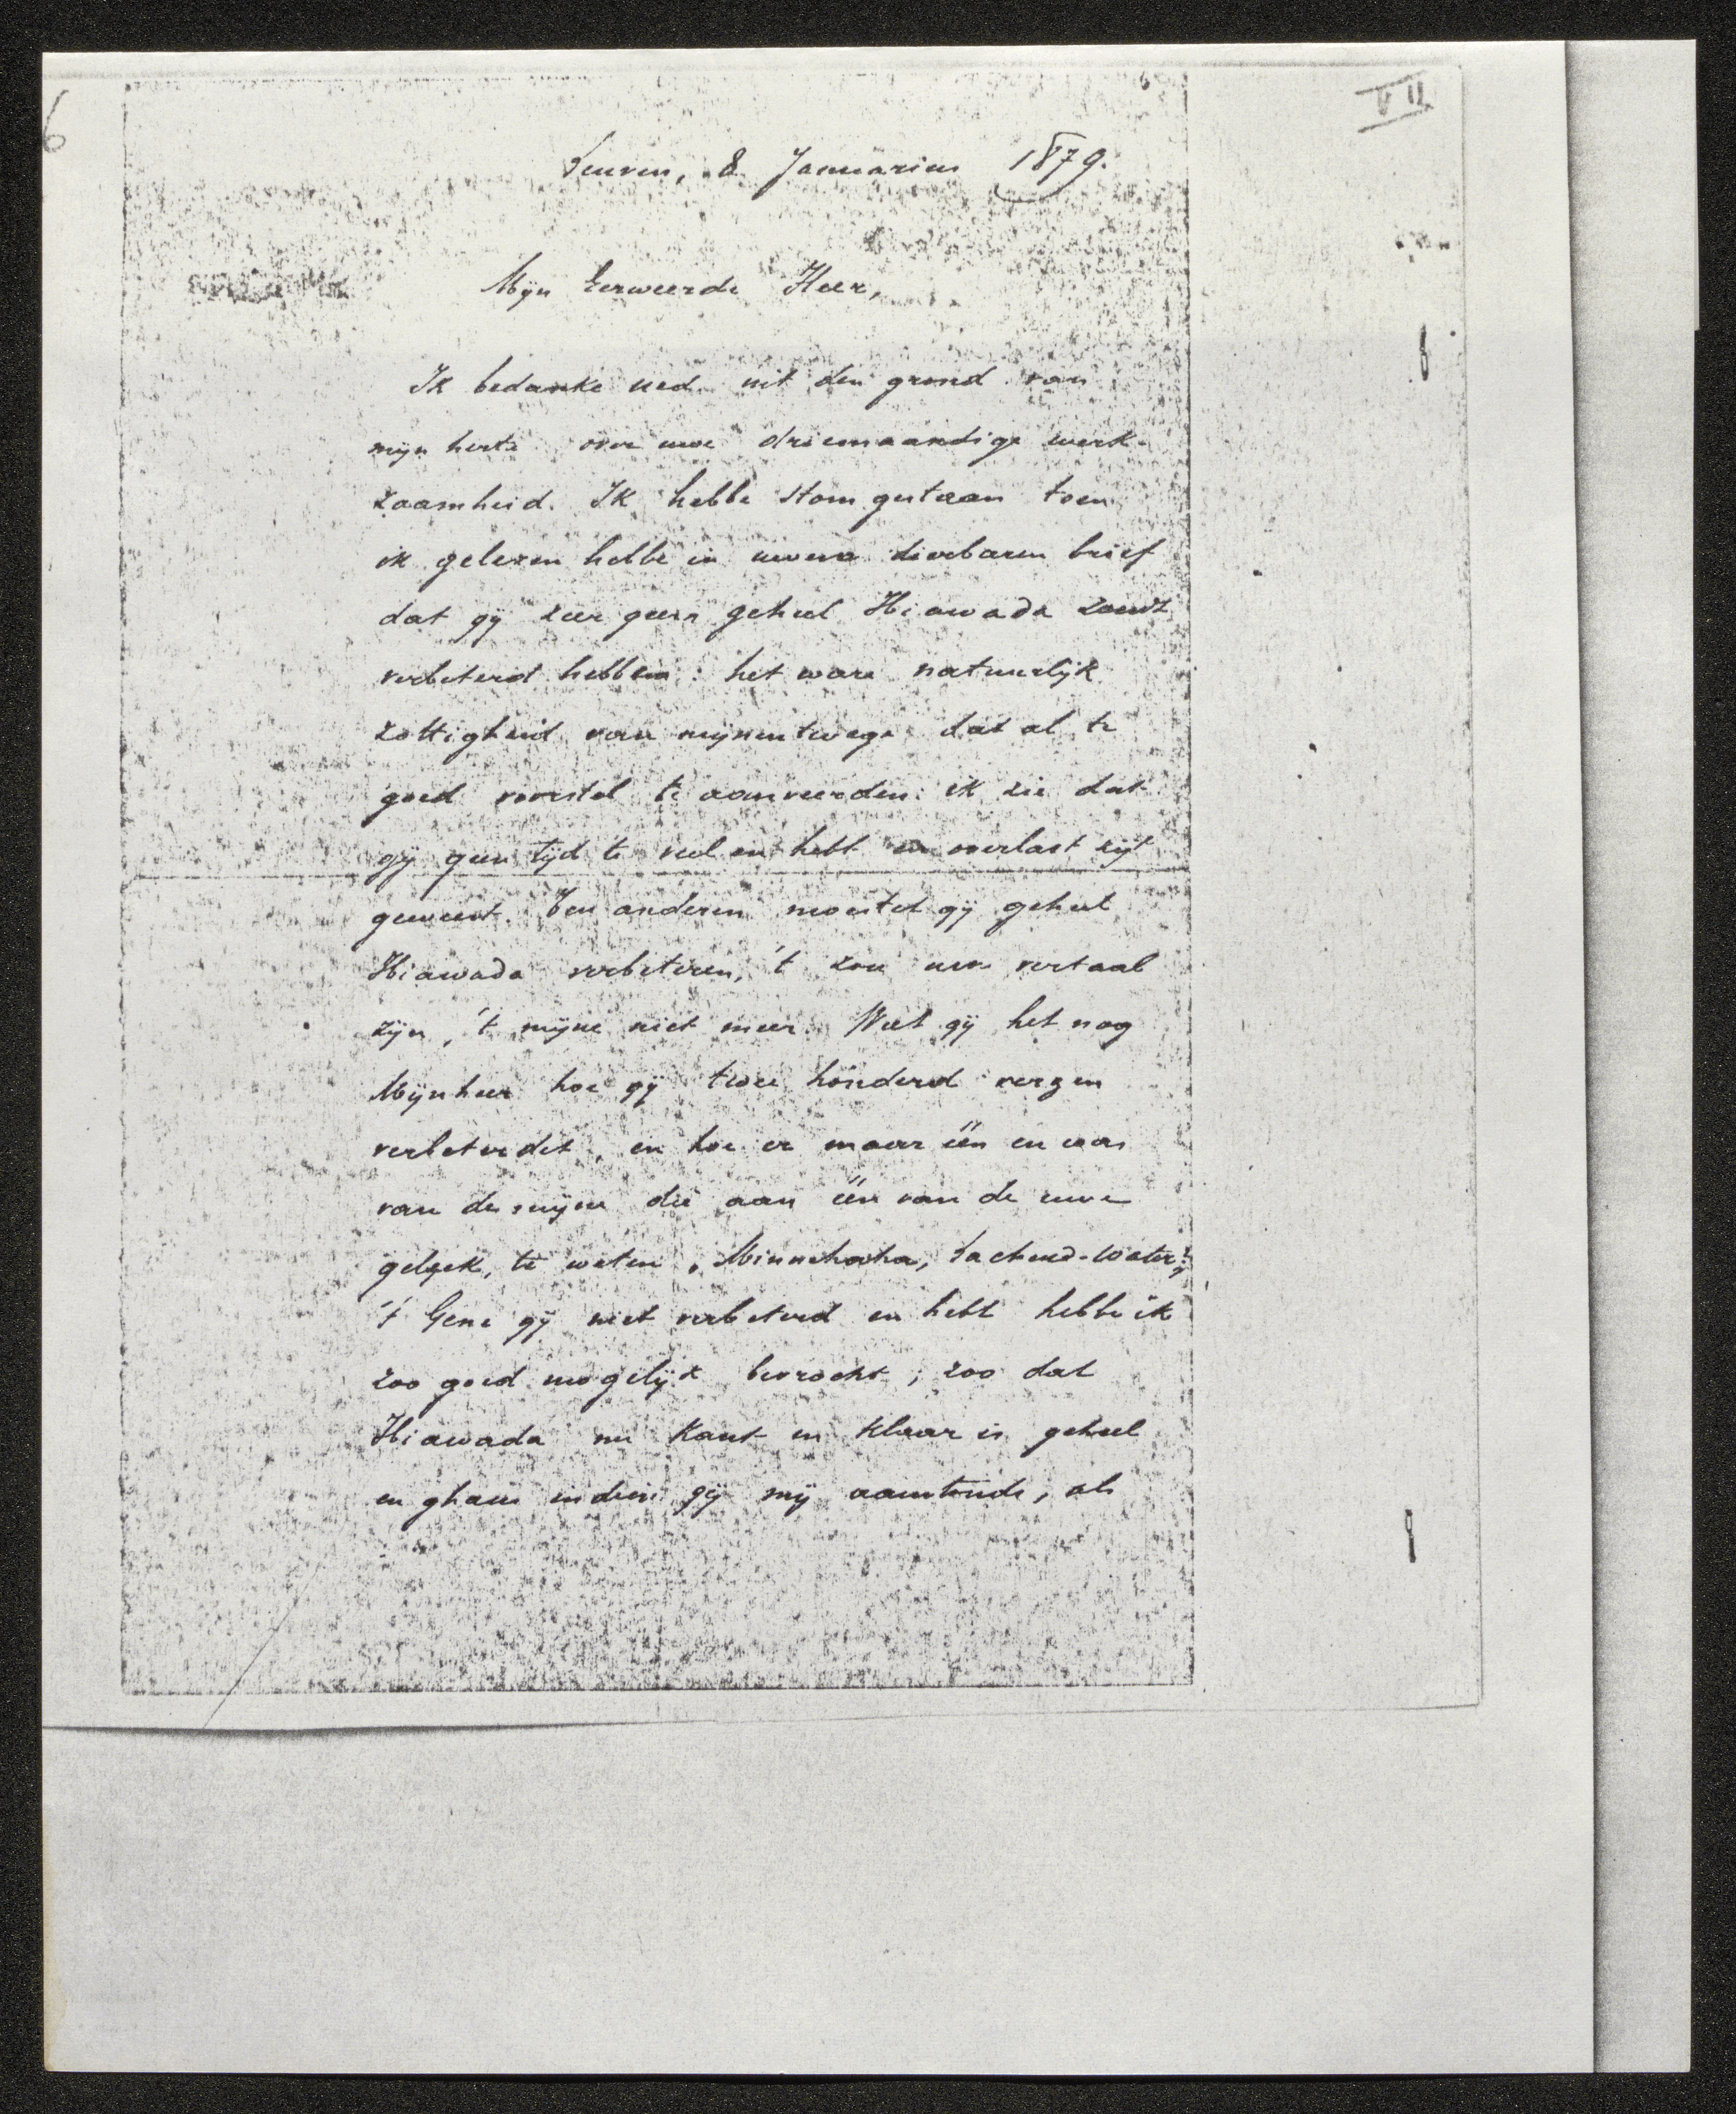 6
VII
Leuven, 8 Januarius 1879.
Mijn Eerweerde Heer,
Ik bedanke ued. uit den grond van
mijn herte over uwe driemaandige werk-
zaamheid. Ik hebbe stom gestaan toen
ik gelezen hebbe in uwen dierbaren brief
dat gij zeer geern geheel Hiawada zoudt
verbeterd hebben: het ware natuurlijk
zottigheid van mijnentwege dat al te
goed voorstel te aanveerden: ik zie dat
gij geen tijd te veel en hebt en overlast zijt
geweest. Ten anderen moestet gij geheel
Hiawada verbeteren, 't zou uwe vertaal
zijn, 't mijne niet meer. Weet gij het nog
Mijnheer hoe gij twee honderd verzen
verbeterdet, en hoe er maar één en was
van de mijne die aan één van de uwe
geleek, te weten "Minnehaha, Lachend-Water";
't Gene gij niet verbeterd en hebt hebbe ik
zoo goed mogelijk bevrocht; zoo dat
Hiawada nu kant en klaar is geheel
en ghans indien gij mij aanstondt, als